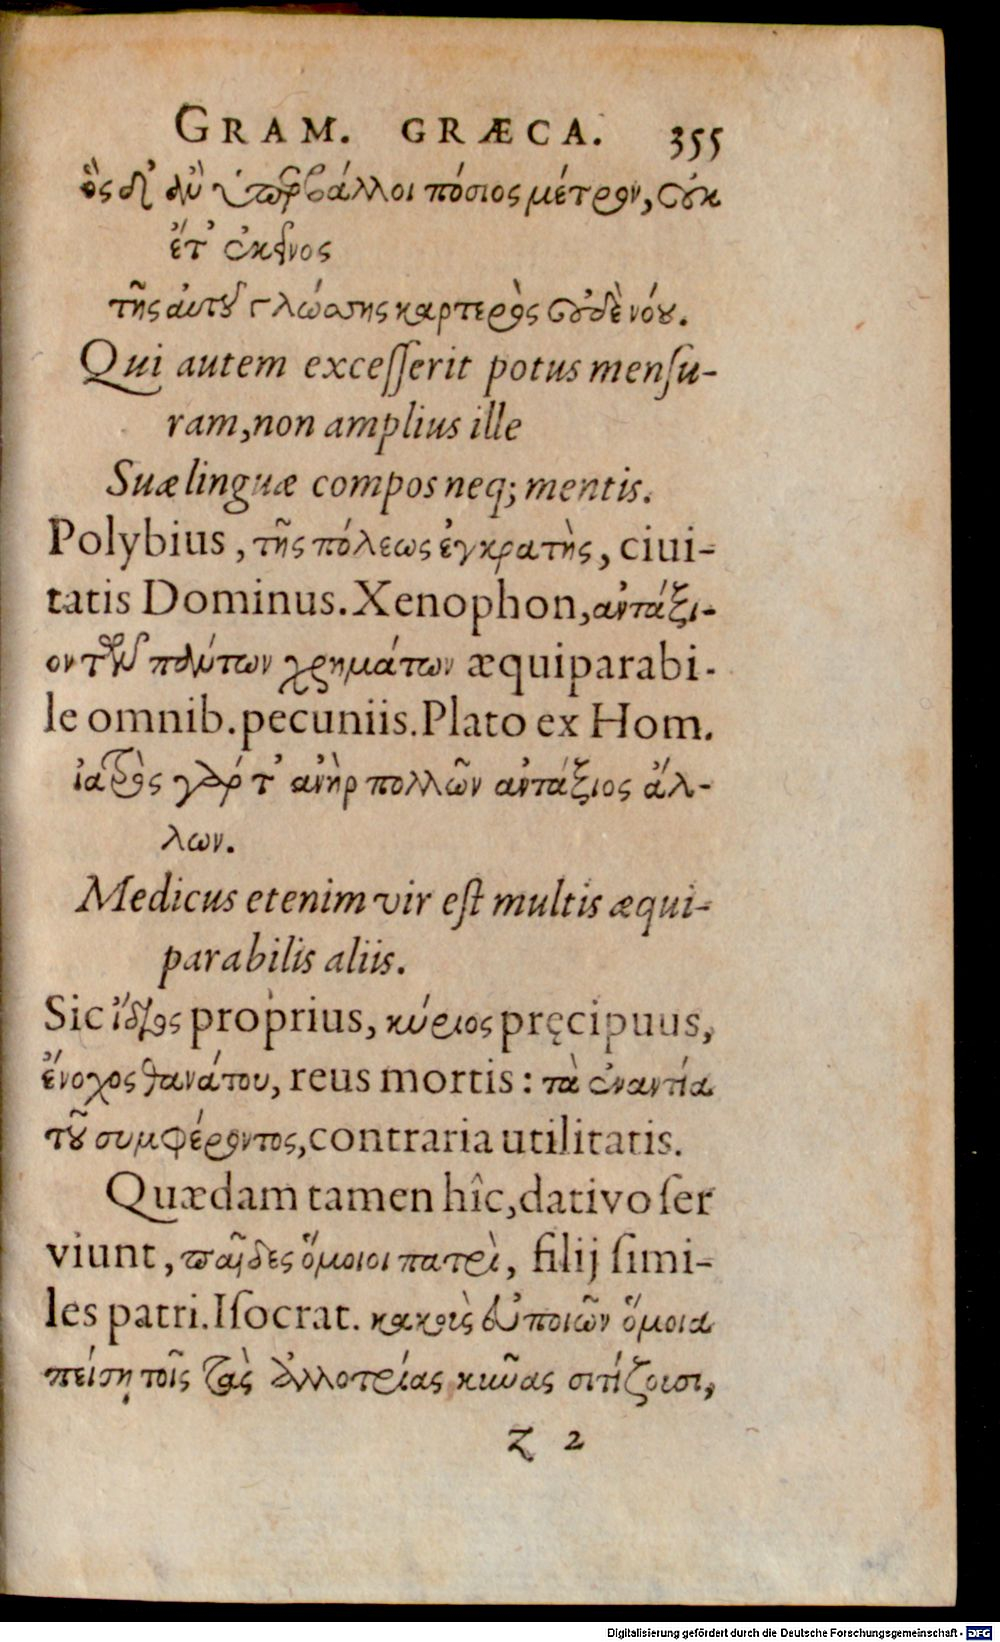 GRAM. GRÆCA. 355
ὃς δ' ἂν ὑπερβάλλοι πόσιος μέτρον, οὐκ
ἔτ' ἐκεῖνος
τῆς αὐτοῦ γλώσσης καρτερὸς οὐδὲ νόου.
Qui autem exceſſerit potus menſu-
ram, non amplius ille
Suæ linguæ compos neq; mentis.
Polybius, τῆς πόλεως ἐγκρατὴς, ciui-
tatis Dominus. Xenophon, ἀντάξι-
ον τῶν πάντων χρημάτων æquiparabi-
le omnib. pecuniis. Plato ex Hom.
ἰατρὸς γάρ τ' ἀνὴρ πολλῶν ἀντάξιος ἄλ-
λων.
Medicus etenim vir eſt multis æqui-
parabilis aliis.
Sic ἴδιος proprius, κύριος pręcipuus,
ἔνοχος θανάτου, reus mortis: τὰ ἐναντία
τοῦ συμφέροντος, contraria utilitatis.
Quædam tamen hîc, dativo ſer
viunt, παῖδες ὅμοιοι πατρὶ, filij ſimi-
les patri. Iſocrat. κακοὺς εὐποιῶν ὅμοια
πείσῃ τοῖς τὰς ἀλλοτρίας κύνας σιτίζουσι,
Z 2
Digitalisierung gefördert durch die Deutsche Forschungsgemeinschaft - DFG